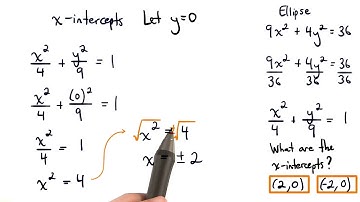 x-intercepts Let y=0
x²/4 + y²/9 = 1
x²/4 + (0)²/9 = 1
x²/4 = 1
x² = 4
√x² = √4
x = ± 2
Ellipse
9x² + 4y² = 36
9x²/36 + 4y²/36 = 36/36
x²/4 + y²/9 = 1
What are the
x-intercepts?
(2,0) (-2,0)